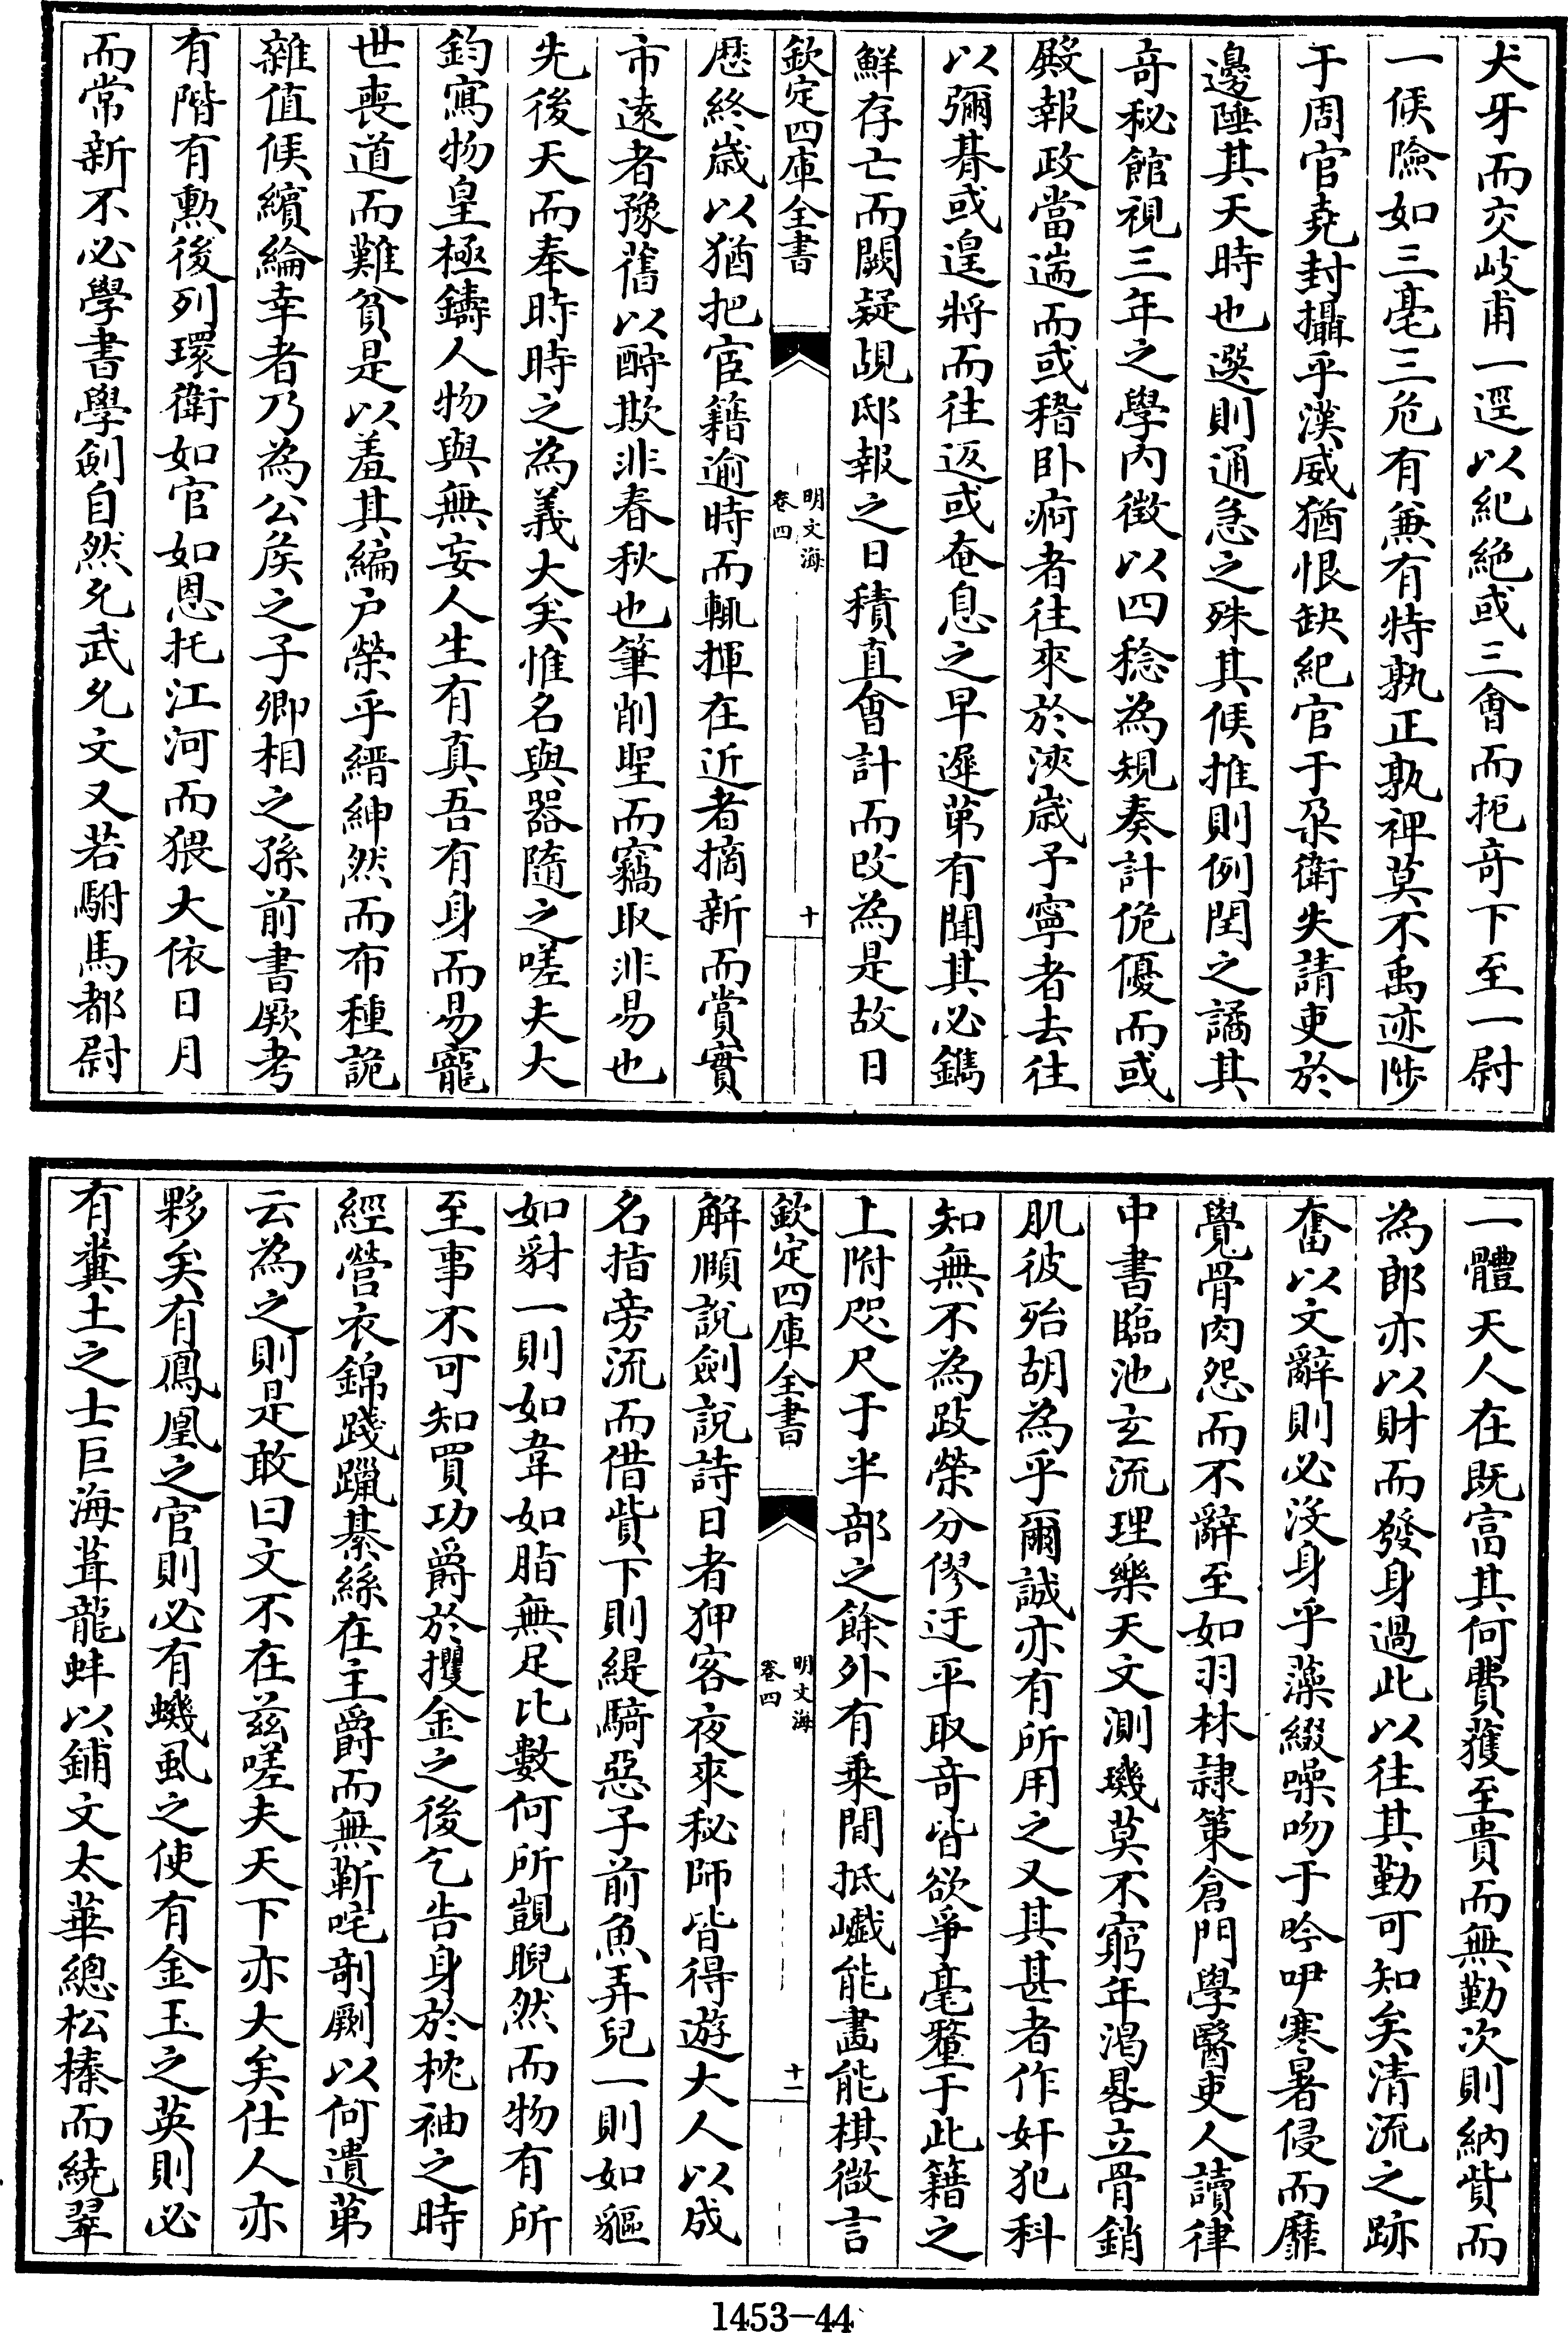 犬牙而交岐甫一逕以紀絶或三會而扼竒下至一尉
一候險如三亳三危有兼有特孰正孰禆莫不禹迹陟
于周官堯封攝乎漢威猶恨缺紀官于朶衛失請吏於
邊陲其天時也選則通急之殊其候推則例閏之譎其
竒秘館視三年之學内徴以四稔為規奏計佹優而或
殿報政當遄而或稽卧痾者往來於浹歲予寧者去往
以彌朞或遑將而往返或奄息之早遲第有聞其必鐫
鮮存亡而闕疑覘邸報之日積直會計而改為是故日
欽定四庫全書
明文海
卷四
十
厯終歲以猶把宦籍逾時而輒揮在近者摘新而賞實
市遠者豫舊以酧欺非春秋也筆削聖而竊取非易也
先後天而奉時時之為義大矣惟名與器隨之嗟夫大
鈞寫物皇極鑄人物與無妄人生有真吾有身而易寵
世喪道而難貧是以羞其編户榮乎縉紳然而布種詭
雜值候繽綸幸者乃為公矦之子卿相之孫前書厥考
有階有勲後列環衛如官如恩托江河而猥大依日月
而常新不必學書學劍自然允武允文又若駙馬都尉
一體天人在既富其何費獲至貴而無勤次則納貲而
為郎亦以財而發身過此以往其勤可知矣清流之跡
奮以文辭則必沒身乎藻綴噪吻于吟吚寒暑侵而靡
覺骨肉怨而不辭至如羽林隷䇿倉門學醫吏人讀律
中書臨池玄流理樂天文測璣莫不窮年渇晷立骨銷
肌彼殆胡為乎爾誠亦有所用之又其甚者作奸犯科
知無不為跂榮分僇迂平取竒皆欲爭毫釐于此籍之
上附咫尺于半部之餘外有乗間抵巇能畫能棋微言
欽定四庫全書
明文海
卷四
十一
解順說劍說詩日者狎客夜來秘師皆得遊大人以成
名指旁流而借貲下則緹騎惡子前魚弄兒一則如貙
如豺一則如韋如脂無足比數何所覬睨然而物有所
至事不可知買功爵於攫金之後乞告身於枕袖之時
經營衣錦踐躐綦絲在主爵而無靳咤剞劂以何遺第
云為之則是敢曰文不在兹嗟夫天下亦大矣仕人亦
夥矣有鳳凰之官則必有蟣虱之使有金玉之英則必
有糞土之士巨海葺龍蚌以鋪文太華總松榛而繞翠
1453—44